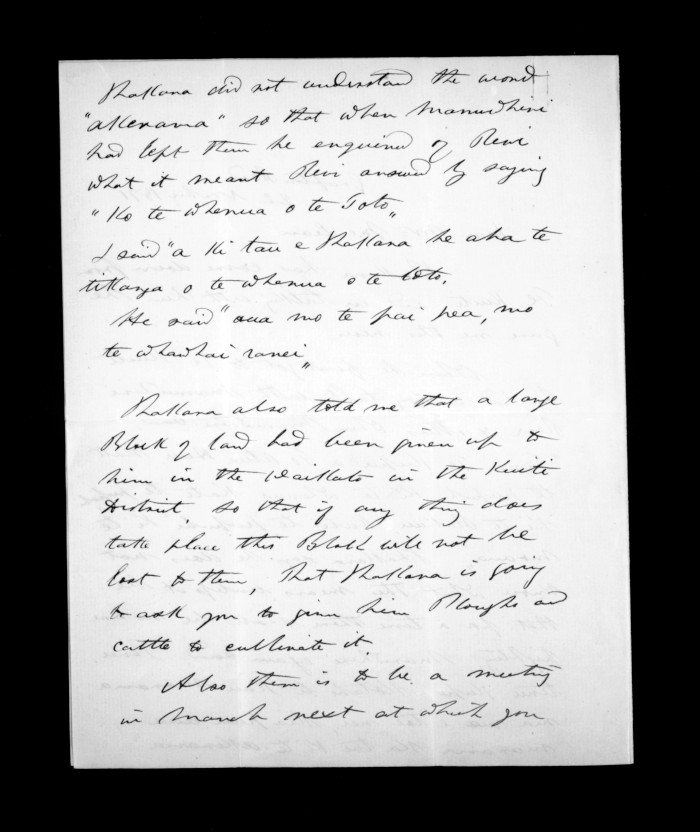 Thakana did not understand the word
"akerama" so that when Manuwhiri
had left them he enquired of Rewi
what it meant Rewi answered by saying
"Ko te whenua o te Toto"
I said "a Ki tau e Thakana he aha te
tikanga o te whenua o te toto.
He said "aua mo te pai pea, mo
te whawhai ranei"
Thakana also told me that a large
Block of land had been given up to
him in the Waikato in the Kuiti
District, so that if any thing does
take place this Block will not be
lost to them, That Thakana is going
to ask you to given him Ploughs and
cattle to cultivate it.
Also there is to be a meeting
in March next at which you